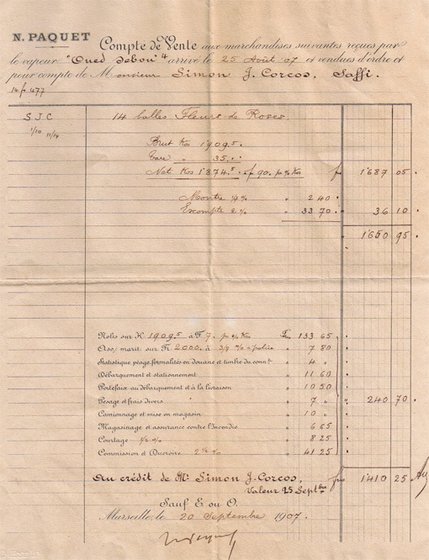 N. PAQUET
Compte de Vente aux marchandises suivantes reçues par
le vapeur "Oued Sebou" arrivé le 25 Août 07 et vendues d'ordre et
pour compte de Monsieur Simon J. Corcos, Saffi.
S J C 14 balles Fleurs de Roses
1/10 11/14
Brut Kos 1909.5
Tare " 35.
Net Kos 1874.5 f 90. p % Ks f 1687 05
Montre " 2 40
Escompte 2% " 33 70 36 10
1650 95
Nolis sur K 1909.5 à F 7. p % Kos F 133 65
Ass. marit. sur Fr 2000. à " 7 80
Statistique péage, formalités en douane et timbre du connt " 4 "
Débarquement et stationnement " 11 60
Portefaix au débarquement et à la livraison " 10 50
Pesage et frais divers " 7 " 240 70
Camionnage et mise en magasin " 10 "
Magasinage et assurance contre l'incendie " 6 65
Courtage ½ % " 8 25
Commission et Ducroire 2½ % " 41 25
Au crédit de Mr Simon J. Corcos, frs 1410 25
Valeur 25 Septbre
Sauf E ou O.
Marseille le 20 Septembre 1907.